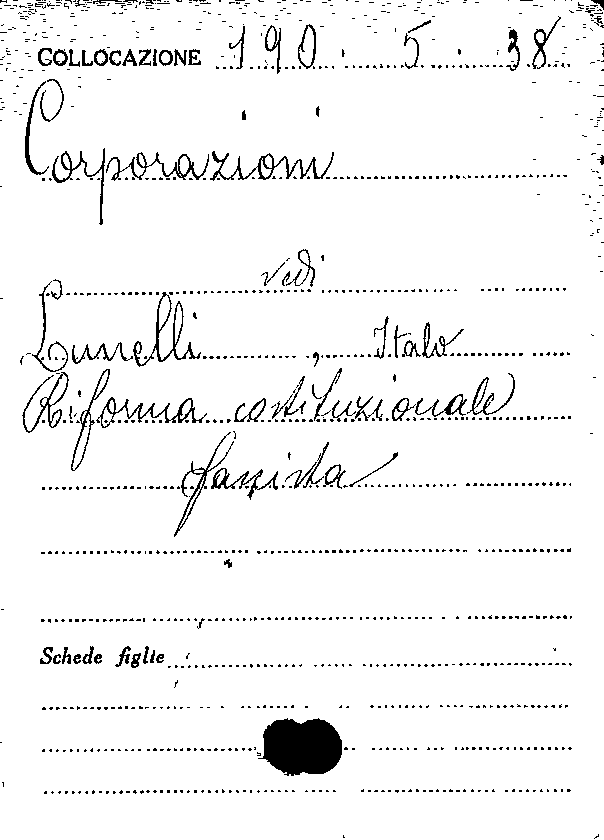 COLLOCAZIONE 190. 5. 38
Corporazioni
vedi
Lunelli, Italo
Riforma costituzionale
fascista
Schede figlie